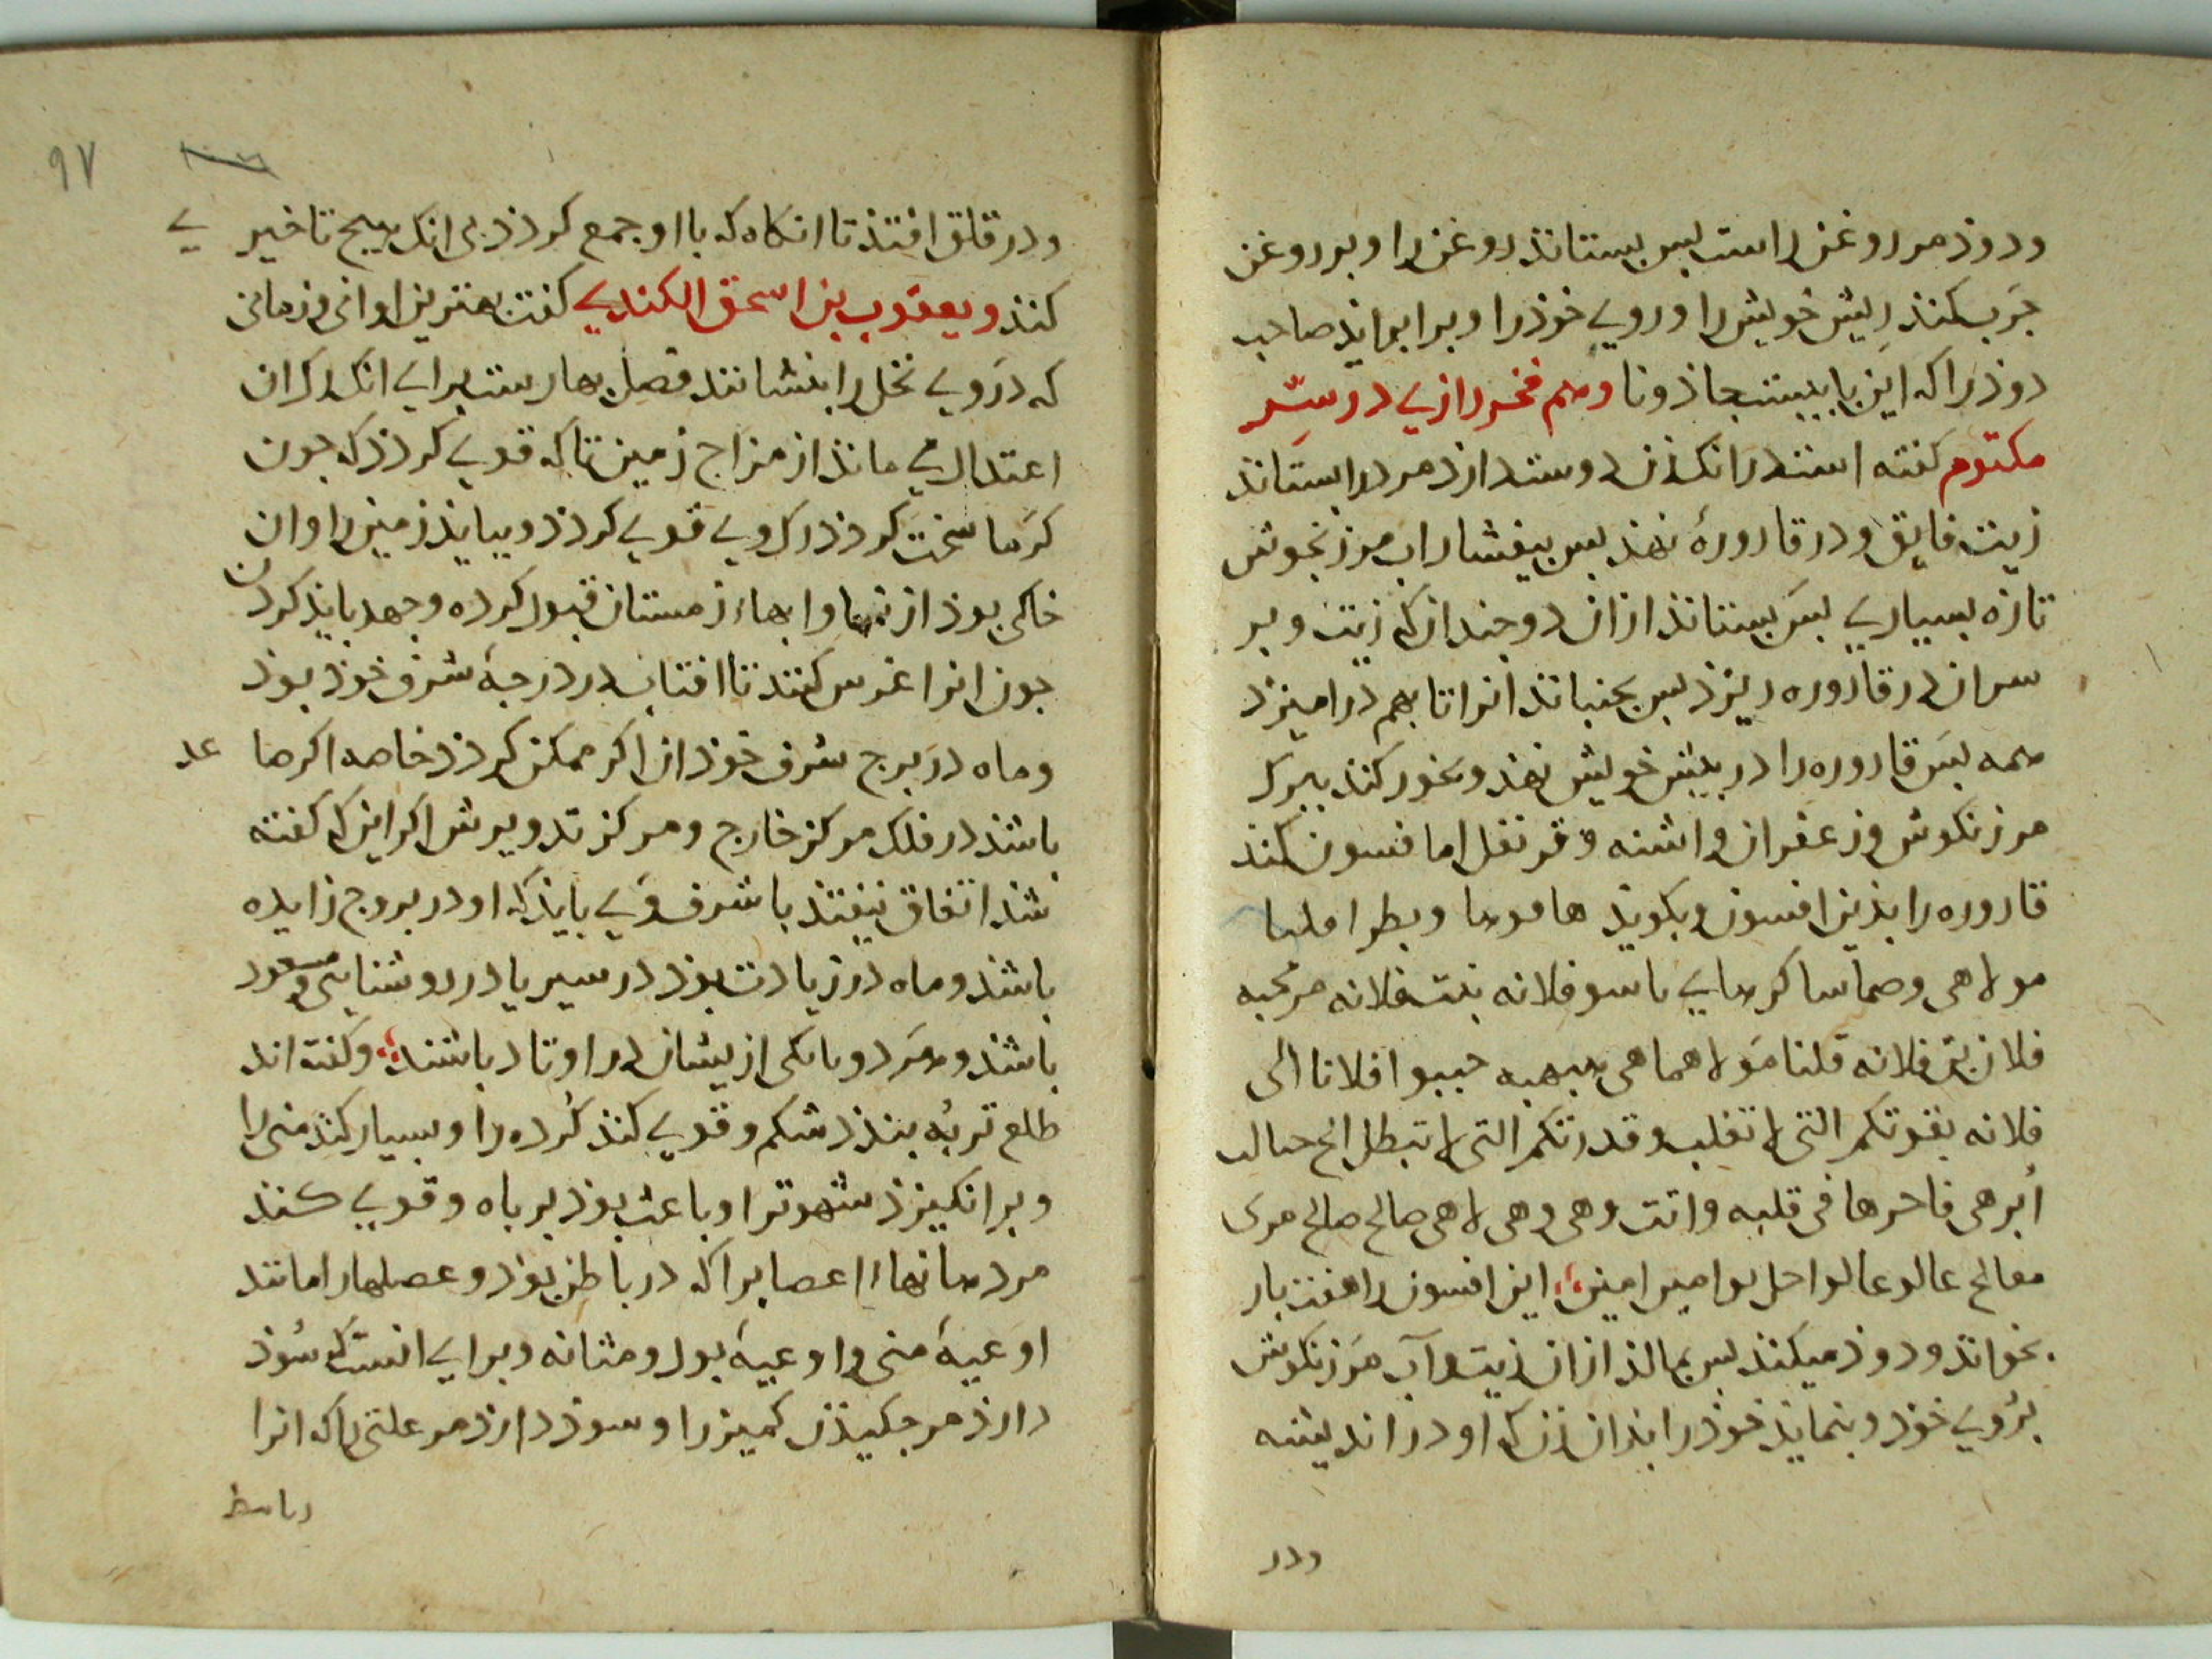 ودوذ مر روغن راست بس بستانذ روغن را و بر روغن
جرب کنذ ریش خویش را و روی خوذ را و برابر ایذ صاحب
دوذ را که این با بیینت جاذونا وهم فخر رازی در سر
مکتوم کفته است در انک زن دوست دارذ مرد را بستانذ
زیت فایق و در قاروره نهذ بس بیفشارذ اب مرزنجوش
تازه بسیاری بس بستانذ از ان دو جندان که زیت و بر
سر ان در قاروره ریزذ بس بجنبانذ انرا تا بهم در امیزذ
همه بس قاروره را در پیش خویش نهذ و بخور کنذ ببرک
مرزنکوش و زعفران و اشنه و قرنفل اما فسون کند
قاروره را بذین افسون و بکویذ هاموسا وبطرا
مولاهی وصماسا فلانه بنت فلانه مر محبه
فلان بن فلانه قلنا مولاهماهی حببوا فلانا الی
فلانه بقوتکم التی لا تغلب وقدرتکم التی لا تبطل
فی قلبه وانت وهی وهی لاهی صالح صالح
معالج عالو عالو امین این افسون را هفت بار
بخوانذ و دوذ میکنذ بس بمالذ از ان زیت و آب مرزنکوش
بروی خوذ و بنمایذ خوذ را بذان زن که او در اندیشه
ودر
۹۷
ودر قلق افتذ تا انکاه که با او جمع کردذ بی انک هیج تاخیر
کنذ و یعقوب بن اسحق الکندی کفت بهترین اوانی و زمانی
که در وی نخل را بنشانند فصل بهارست برای انک در ان
اعتدال می مانذ از مزاج زمین تا که قوی کردذ که جون
کرما سخت کردذ رک وی قوی کردذ و بیایذ زمین را و ان
خاکی بوذ از نمها و ابهاء زمستان قبول کرده و جهد بایذ کردن
جون انرا غرس کنند تا افتاب در درجهٔ شرف خوذ بوذ
وماه در برج شرف خوذ ان اکر ممکن کردذ خاصه اکر صاعد
باشذ در فلک مرکز خارج و مرکز تدویرش اکر این که کفته
شذ اتفاق نیفتذ با شرف وی بایذ که او در بروج زایده
باشذ و ماه در زیادت بوذ در سیر یا در روشنایی و مسعود
باشذ و هر دو یا یکی از یشان در اوتاد باشند و کفته اند
طلع تر به بنذذ شکم و قوی کنذ کرده را و بسیار کنذ منی را
و بر انکیزذ شهوت را و باعث بوذ بر باه و قوی کنذ
مر دهانهاء اعصاب را که در باطن بوذ و عصلها را مانند
اوعیهٔ منی و اوعیهٔ بول و مثانه و برای انست که سوذ
دارذ مر جکیذن کمیز را و سوذ دارذ مر علتی را که انرا